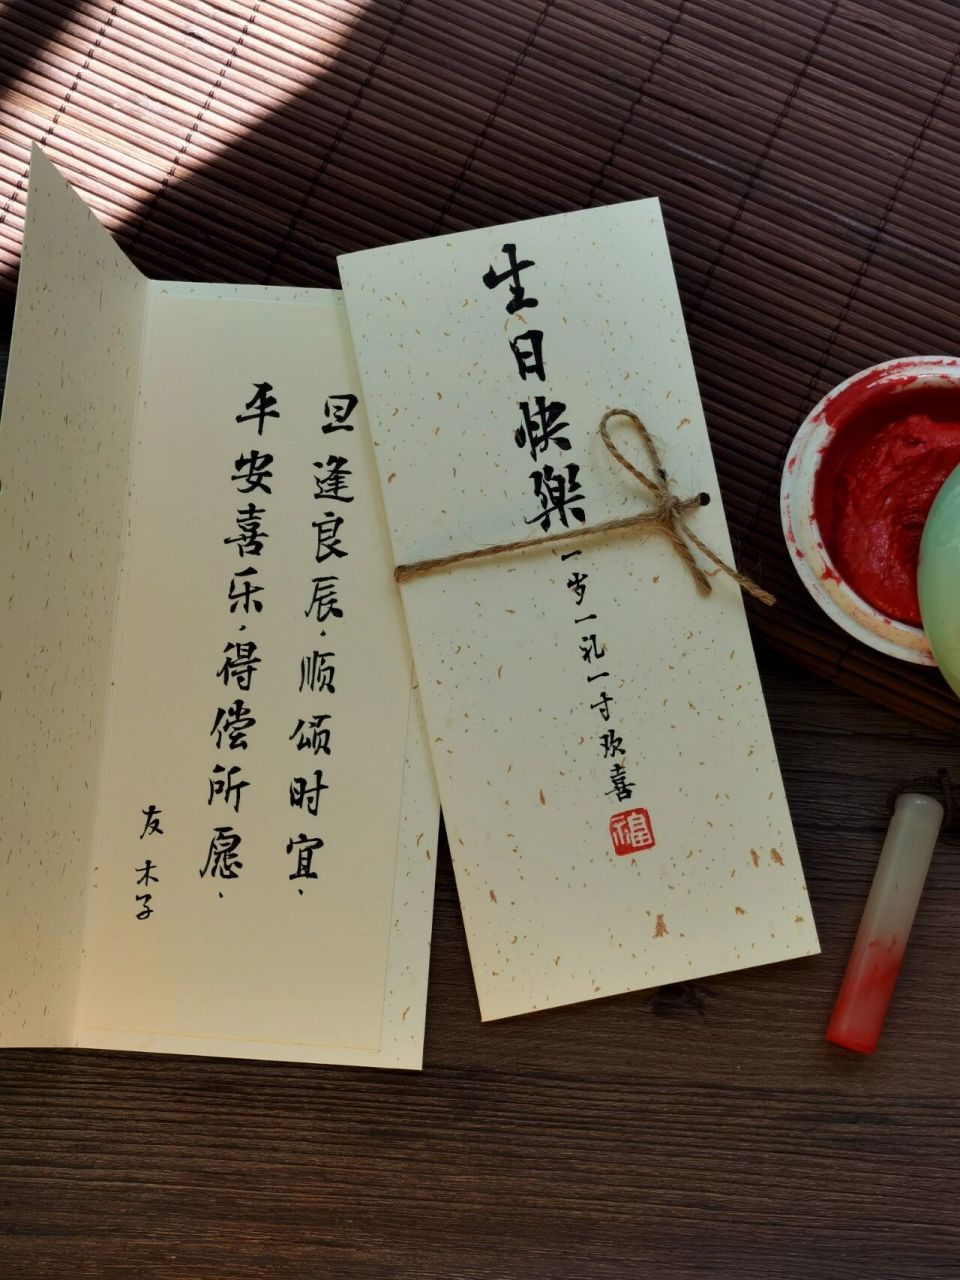 旦逢良辰·顺颂时宜·
平安喜乐·得偿所愿·
友 木子
生日快樂
一岁一礼一寸欢喜
福